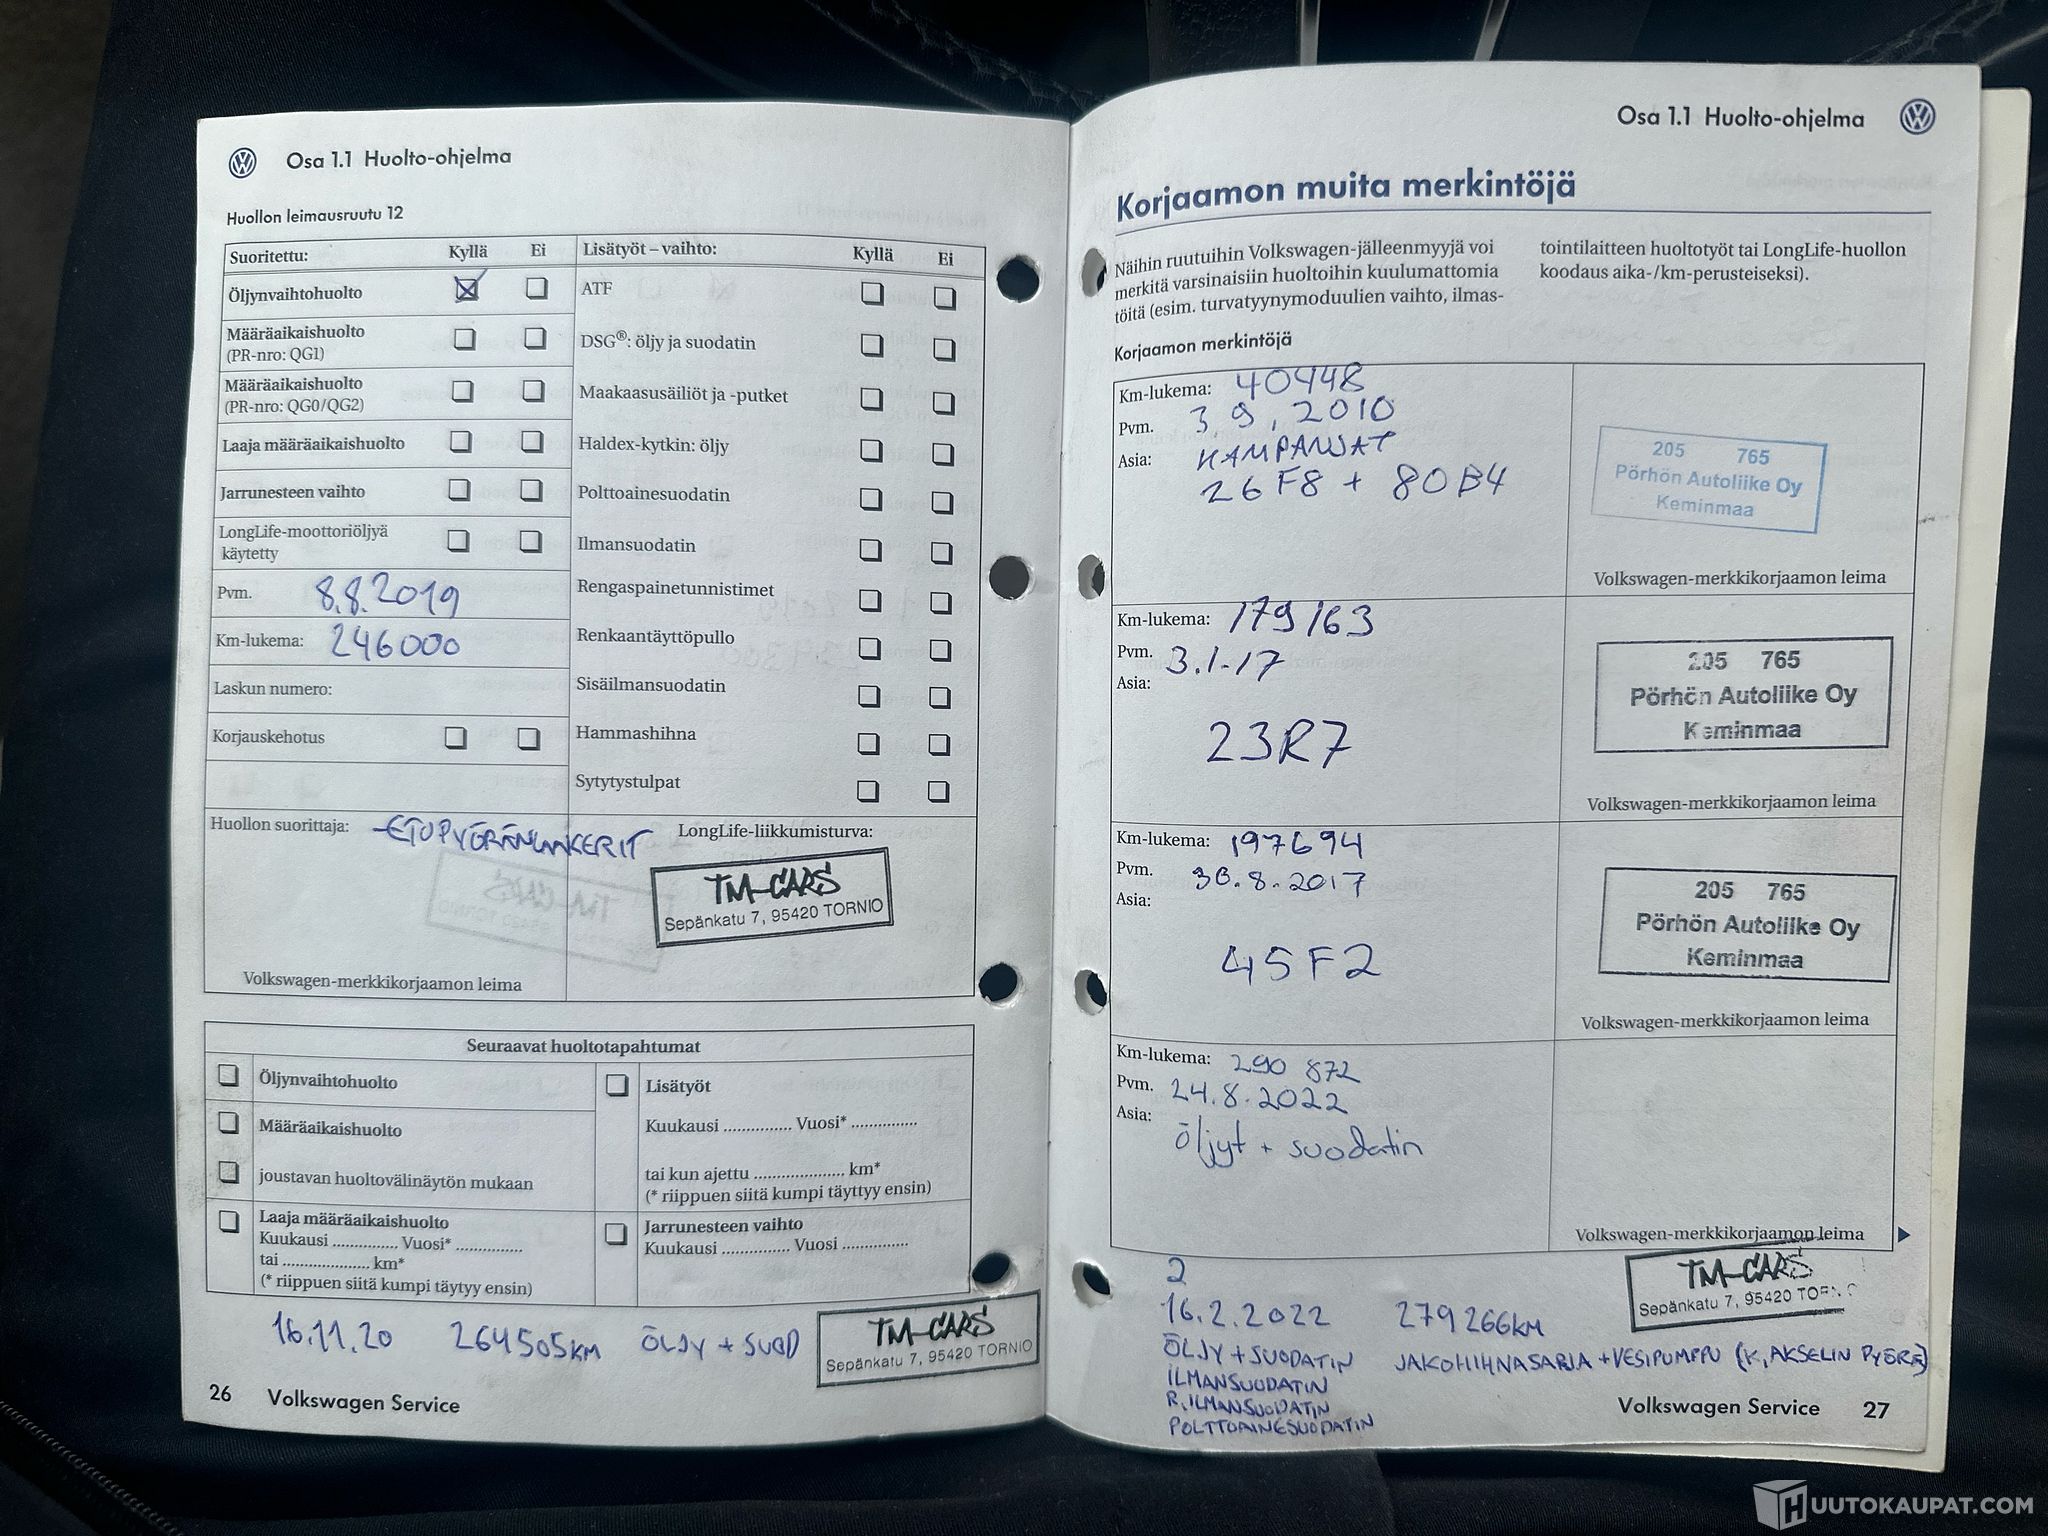 Osa 1.1 Huolto-ohjelma
Huollon leimausruutu 12
Suoritettu: Kyllä Ei Lisätyöt – vaihto: Kyllä Ei
Öljynvaihtohuolto ATF
Määräaikaishuolto
(PR-nro: QG1)
DSG®: öljy ja suodatin
Määräaikaishuolto
(PR-nro: QG0/QG2)
Maakaasusäiliöt ja -putket
Laaja määräaikaishuolto Haldex-kytkin: öljy
Jarrunesteen vaihto Polttoainesuodatin
LongLife-moottoriöljyä
käytetty
Ilmansuodatin
Pvm. 8.8.2019 Rengaspainetunnistimet
Km-lukema: 246000 Renkaantäyttöpullo
Laskun numero: Sisäilmansuodatin
Korjauskehotus Hammashihna
Sytytystulpat
Huollon suorittaja: LongLife-liikkumisturva:
TM-CARS
Sepänkatu 7, 95420 TORNIO
Volkswagen-merkkikorjaamon leima
Seuraavat huoltotapahtumat
Öljynvaihtohuolto
Määräaikaishuolto
joustavan huoltovälinäytön mukaan
Laaja määräaikaishuolto
Kuukausi .............. Vuosi* ..............
tai .................... km*
(* riippuen siitä kumpi täytyy ensin)
Lisätyöt
Kuukausi .............. Vuosi* ..............
tai kun ajettu .................... km*
(* riippuen siitä kumpi täyttyy ensin)
Jarrunesteen vaihto
Kuukausi .............. Vuosi ..............
16.11.20 264505KM ÖLJY + SUOD
TM-CARS
Sepänkatu 7, 95420 TORNIO
26 Volkswagen Service
Osa 1.1 Huolto-ohjelma
Korjaamon muita merkintöjä
Näihin ruutuihin Volkswagen-jälleenmyyjä voi
merkitä varsinaisiin huoltoihin kuulumattomia
töitä (esim. turvatyynymoduulien vaihto, ilmas-
tointilaitteen huoltotyöt tai LongLife-huollon
koodaus aika-/km-perusteiseksi).
Korjaamon merkintöjä
Km-lukema: 40448
Pvm. 3.9.2010
Asia: KAMPANJAT
26F8 + 80B4
205 765
Pörhön Autoliike Oy
Keminmaa
Volkswagen-merkkikorjaamon leima
Km-lukema: 179163
Pvm. 3.1.17
Asia:
23R7
205 765
Pörhön Autoliike Oy
Keminmaa
Volkswagen-merkkikorjaamon leima
Km-lukema: 197694
Pvm. 30.8.2017
Asia:
45F2
205 765
Pörhön Autoliike Oy
Keminmaa
Volkswagen-merkkikorjaamon leima
Km-lukema: 290 872
Pvm. 24.8.2022
Asia: öljyt + suodatin
Volkswagen-merkkikorjaamon leima
TM-CARS
Sepänkatu 7, 95420
2
16.2.2022 279266KM
ÖLJY + SUODATIN JAKOHIHNASARJA + VESIPUMPPU (K, AKSELIN PYÖRÄ)
ILMANSUODATIN
R, ILMANSUODATIN
POLTTOAINESUODATIN
Volkswagen Service 27
HUUTOKAUPAT.COM